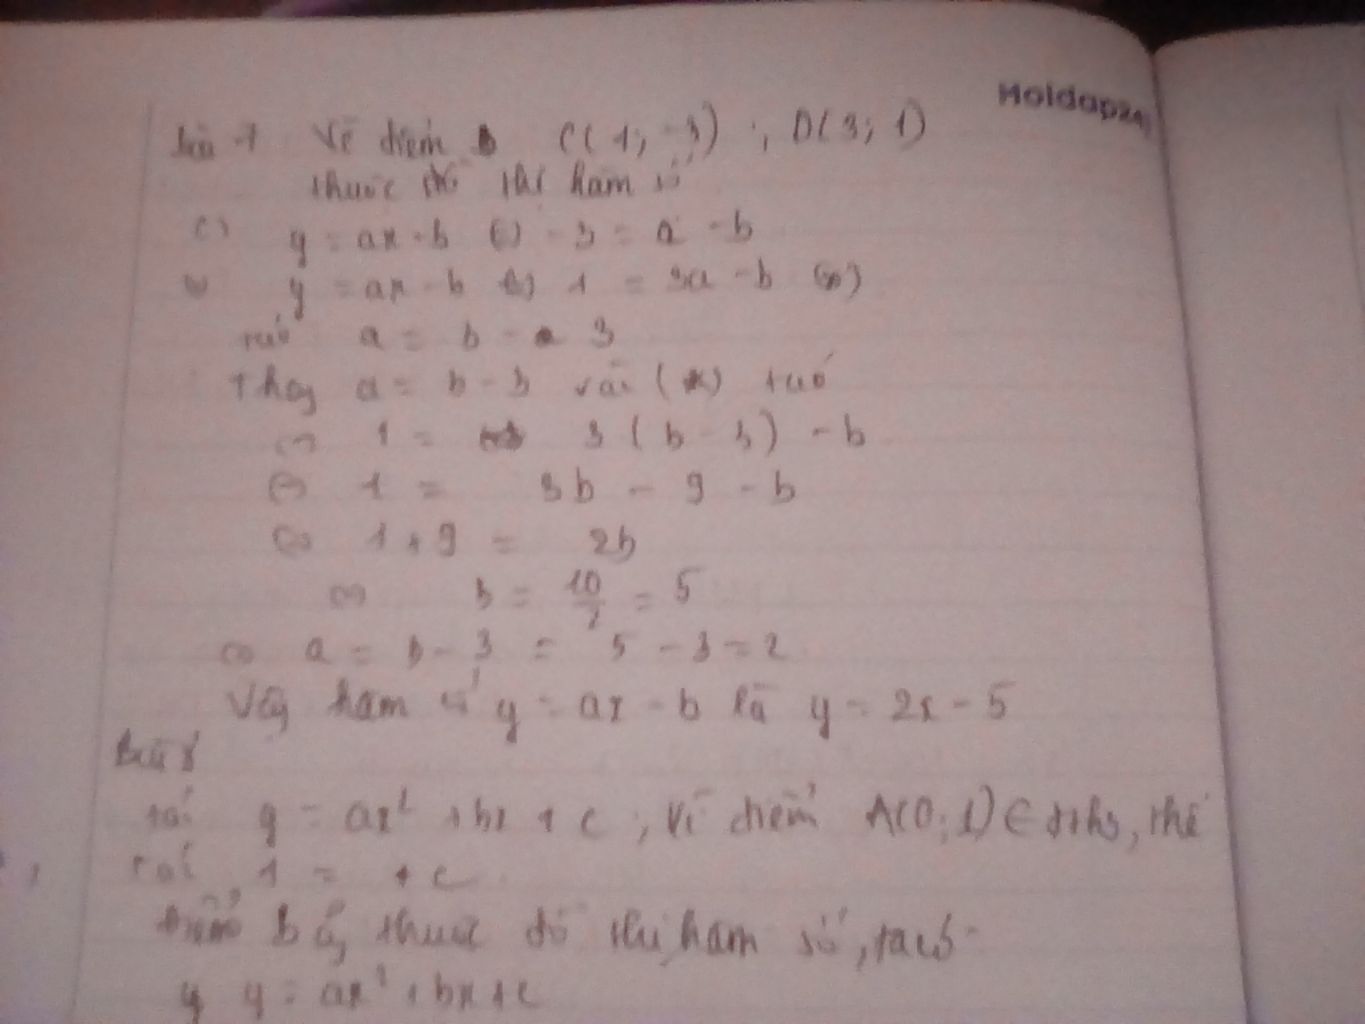 Hoidap247
bài 7 Vì điểm C(1; -3); D(3; 1)
thuộc đồ thị hàm số
y = ax - b (=) -3 = a - b
y = ax - b (=) 1 = 3a - b (*)
a = b - 3
Thay a = b - 3 vào (*) ta có
(=) 1 = 3(b - 3) - b
(=) 1 = 3b - 9 - b
(=) 1 + 9 = 2b
(=) b = 10/2 = 5
(=) a = b - 3 = 5 - 3 = 2
Vậy hàm số y = ax - b là y = 2x - 5
Bài 8
y = ax² + bx + c, vì điểm A(0; 1) ∈ đths, thì
1 = + c
điểm B thuộc đồ thị hàm số, ta có
y = ax² + bx + c